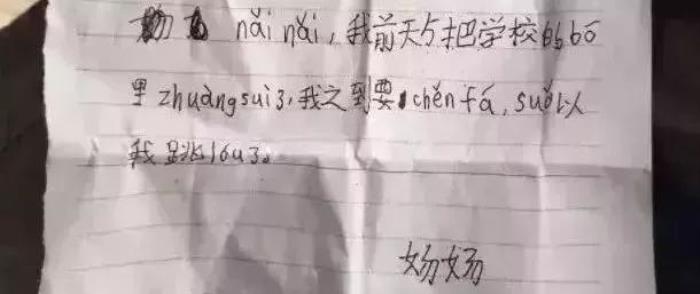 nǎi nǎi,我前天与把学校的bō
里zhuàngsuì3,我之到要chěnfá,suǒ以
我跳lóu3。